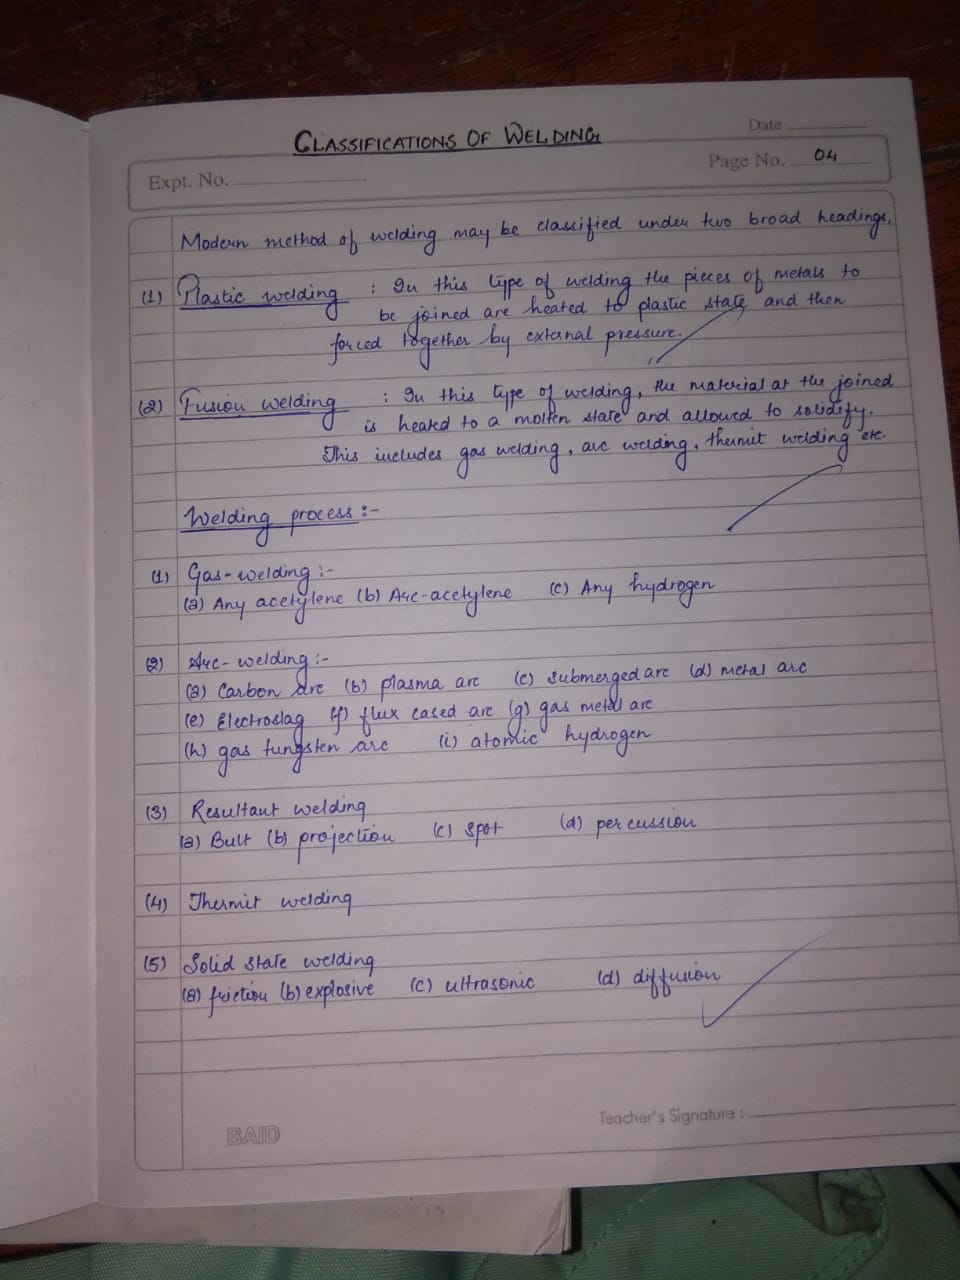 CLASSIFICATIONS OF WELDING
Date
Expt. No.
Page No. 04
Modern method of welding may be classified under two broad headings,
(1) Plastic welding : In this type of welding the pieces of metals to
be joined are heated to plastic state and then
forced together by external pressure.
(2) Fusion welding : In this type of welding, the material at the joined
is heated to a molten state and allowed to solidify.
This includes gas welding, arc welding, thermit welding etc.
Welding process :-
(1) Gas-welding :-
(a) Any acetylene (b) Arc-acetylene (c) Any hydrogen
(2) Arc-welding :-
(a) Carbon arc (b) plasma arc (c) submerged arc (d) metal arc
(e) Electroslag (f) flux cased arc (g) gas metal arc
(h) gas tungsten arc (i) atomic hydrogen
(3) Resultant welding
(a) Butt (b) projection (c) spot (d) percussion
(4) Thermit welding
(5) Solid state welding
(a) friction (b) explosive (c) ultrasonic (d) diffusion
Teacher's Signature :
BAID